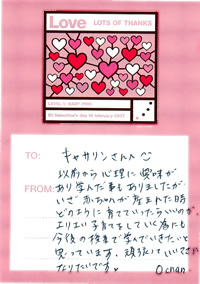 Love LOTS OF THANKS
LEVEL 1: BABY PINK
St. Valentine's day 14 february 2022
TO:
キャサリンさんへ
FROM:
以前から心理に興味が
あり学んだ事もありましたが
いざ赤ちゃんが産まれた時
どのように育てていったらいいのか
子育てをしていく為にも
今後の役まで学んでいきたいと
思っています。頑張っていいママに
なりたいです。